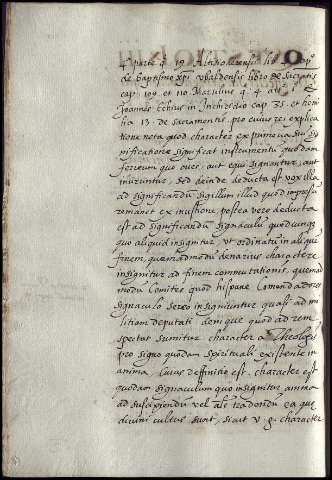 4 parte q. 19 Altisiodorensis lib. cap.
de baptismo xpi ubaldensis libro de Sacratis
cap. 109 et 110 Marsilius q. 4 ar. i
Joannes Echius in Inchiridio cap. 35. et homi
lia 13. de sacramentis. pro cuius rei explica
tione nota quod character ex primeva sui si
nificatione significat instrumentu quodam
ferreum quo oves, aut equi signantur, aut
inuruntur, sed deinde deducta est vox illa
ad significandu sigillum illud quod impressu
remanet ex inustione, postea vero deducta
est ad significandu signaculu quodcunque
quo aliquid insignitur, ut ordinatu in alique
finem, quemadmodu denarius charactere
insignitur ad finem commutationis, quemad
modu Comites quod hispane Comendadores
signaculo sereo insigniuntur quasi ad mi
litiam deputati denique quod ad rem
spectat sumitur character a Theologis
pro signo quodam spirituali existente in
anima, cuius deffinitio est. character est
quodam signaculum quo insignitur anima
ad suscipiendu vel aliis tradendu ea que
divini cultus sunt, sicut v. g. character